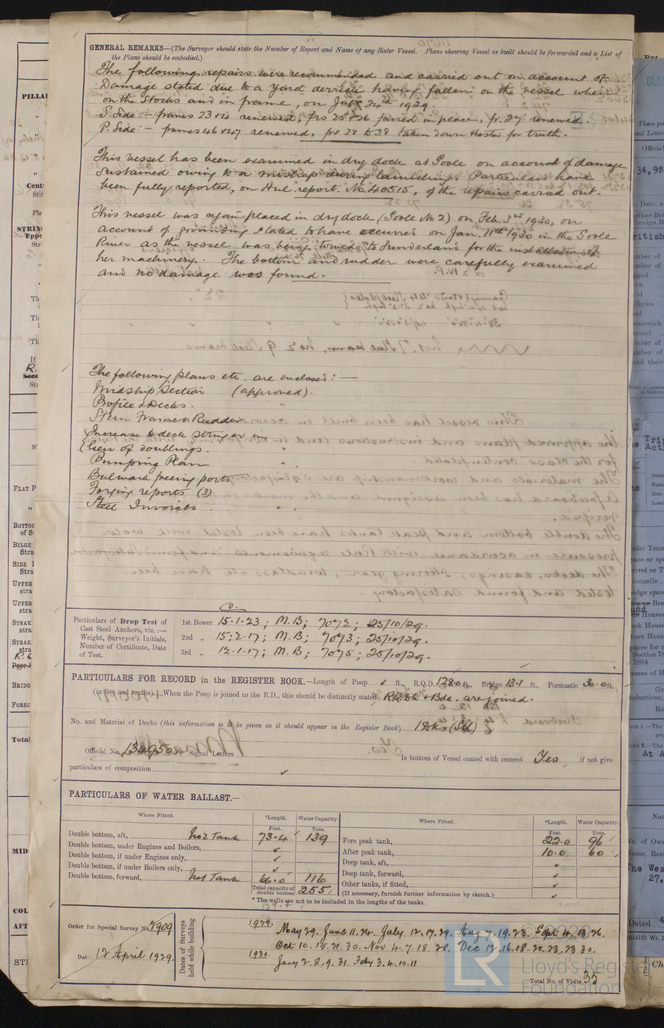 GENERAL REMARKS—(The Surveyor should state the Number of Report and Name of any Sister Vessel. Plans shewing Vessel as built should be forwarded and a List of
the Plans should be embodied.)
The following repairs were recommended and carried out on account of
Damage stated due to a yard derrick having fallen on the vessel when
on the Stocks and in frame, on July 24th 1929.
S. Side – frames 23 & 24 renewed, frs 25 & 26 faired in place, fr. 27 renewed.
P. Side – frames 46 & 47 renewed, frs 28 to 38 taken down
This vessel has been examined in dry dock at Poole on account of damage
sustained owing to a mishap during launching. Particulars have
been fully reported, on Hul report No 40515, of the repairs carried out.
This vessel was again placed in dry dock (Poole No 2) on Feb. 3rd 1930, on
account of grounding stated to have occurred on Jan. 11th 1930 in the Poole
River as the vessel was being towed to Sunderland for the installation of
her machinery. The bottom and rudder were carefully examined
and no damage was found.
The following plans etc. are enclosed: —
Midship Section (approved).
Profile & Decks. "
Stern Frame & Rudder "
Increase to deck stringer on
lieu of doublings. "
Pumping Plan "
Bulwark freeing ports "
Forging reports (3)
Steel Invoices.
Particulars of Drop Test of
Cast Steel Anchors, viz.:—
Weight, Surveyor's Initials,
Number of Certificate, Date
of Test.
1st Bower 15.1.23; M.B; 7072; 25/10/29.
2nd „ 15.2.17; M.B; 7073; 25/10/29.
3rd „ 12.1.17; M.B; 7075; 25/10/29.
PARTICULARS FOR RECORD in the REGISTER BOOK.—Length of Poop ft., R.Q.D. 128.0 ft., Bridge 13.1 ft., Forecastle 30.0 ft.
(in feet and tenths). When the Poop is joined to the B.D., this should be distinctly stated R.Q.Dk + Bdc. are joined.
No. and Material of Decks (this information is to be given as it should appear in the Register Book) 1 Dk. (Stl)
Official No. 134950 Signal Letters Is bottom of Vessel coated with cement Yes, if not give
particulars of composition
PARTICULARS OF WATER BALLAST.—
Where Fitted. *Length. Water Capacity. Where Fitted. *Length. Water Capacity.
Feet. Tons. Feet. Tons.
Double bottom, aft, No 2 Tank 73.4 139 Fore peak tank, 22.0 96
Double bottom, under Engines and Boilers, After peak tank, 10.0 60
Double bottom, if under Engines only, Deep tank, aft,
Double bottom, if under Boilers only, Deep tank, forward,
Double bottom, forward, No 1 Tank 66.0 116 Other tanks, if fitted,
Total capacity of double bottom 255 (If necessary, furnish further information by sketch.)
* The wells are not to be included in the lengths of the tanks.
Order for Special Survey No. 2909
Date 12 April 1929.
Dates of Surveys held while building
1929. May 29. June 11. 24. July 12. 17. 29. Aug 7. 19. 23. Sept 4. 13. 26.
Oct 10. 18. 21. 30. Nov 4. 7. 18. 28. Dec 12. 16. 18. 20. 23. 23. 30.
1930. Jany 2. 8. 9. 31. Feby 3. 4. 10. 11
Total No. of Visits 35
LR
Lloyd's Register
Foundation